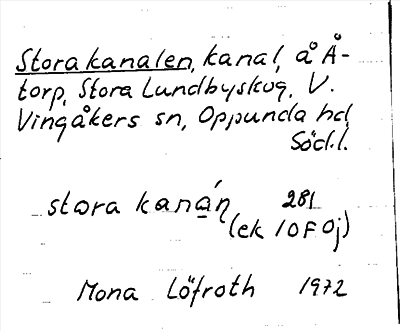 Stora kanalen, kanal, å Å-
torp, Stora Lundbyskog, V.
Vingåkers sn, Oppunda hd,
Södl.
stɷra kaná̱n 281
(ek 10F0j)
Mona Löfroth 1972